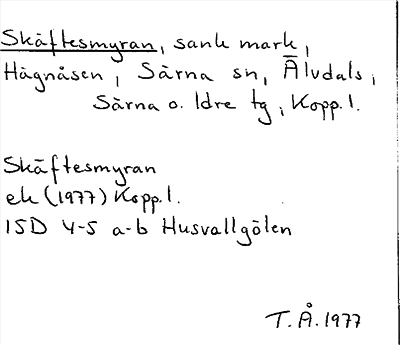 Skäftesmyran, sank mark,
Hägnåsen, Särna sn, Älvdals,
Särna o. Idre tg, Kopp. l.
Skäftesmyran
ek (1977) Kopp. l.
15D 4-5 a-b Husvallgölen
T. Å. 1977